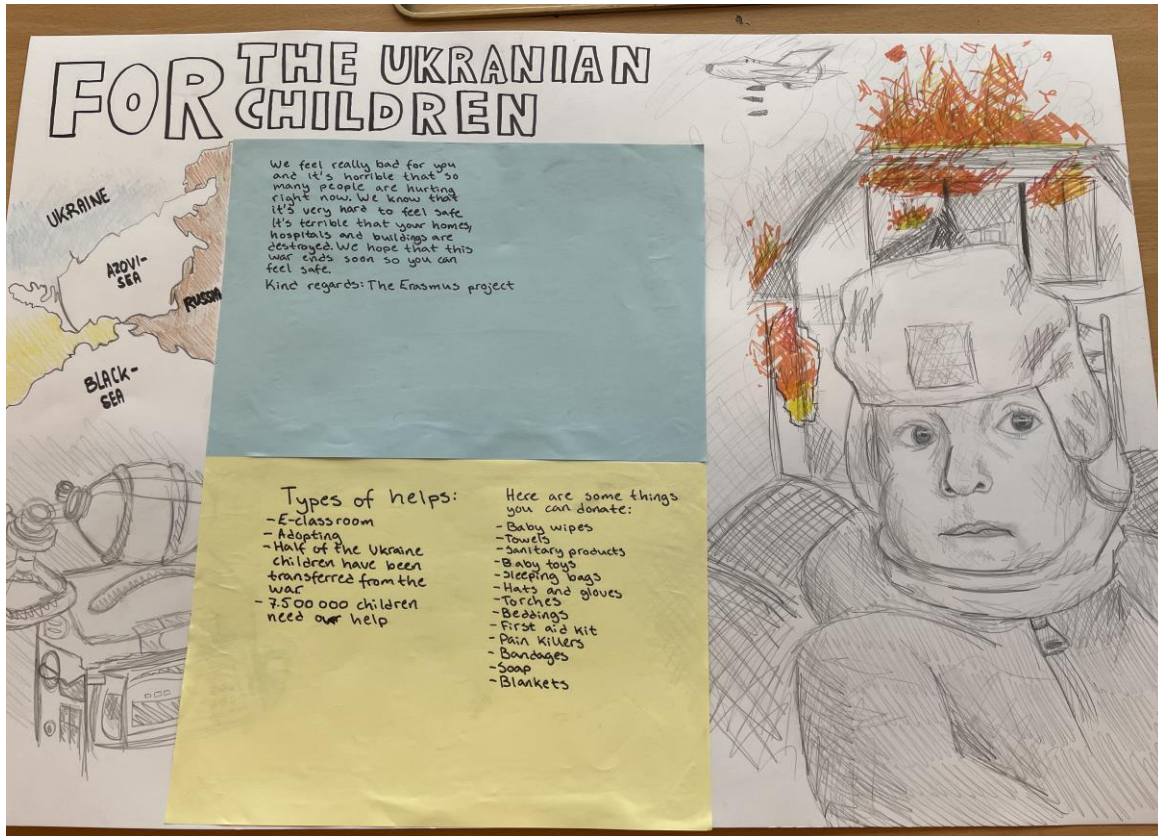 FOR THE UKRANIAN
CHILDREN
UKRAINE
AZOVI-
SEA
RUSSIA
BLACK-
SEA
We feel really bad for you
and it's horrible that so
many people are hurting
right now. We know that
it's very hard to feel safe
It's terrible that your homes,
hospitals and buildings are
destroyed. We hope that this
war ends soon so you can
feel safe.
Kind regards: The Erasmus project
Types of helps:
- E-classroom
- Adopting
- Half of the Ukraine
children have been
transferred from the
war
- 7.500 000 children
need our help
Here are some things
you can donate:
- Baby wipes
- Towels
- Sanitary products
- Baby toys
- Sleeping bags
- Hats and gloves
- Torches
- Beddings
- First aid kit
- Pain killers
- Bandages
- Soap
- Blankets